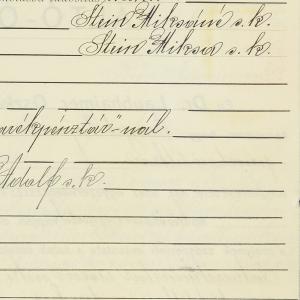 Stein Miksáné s.k.
Stein Miksa s.k.
arékpénztár"-nál.
Adolf s.k.